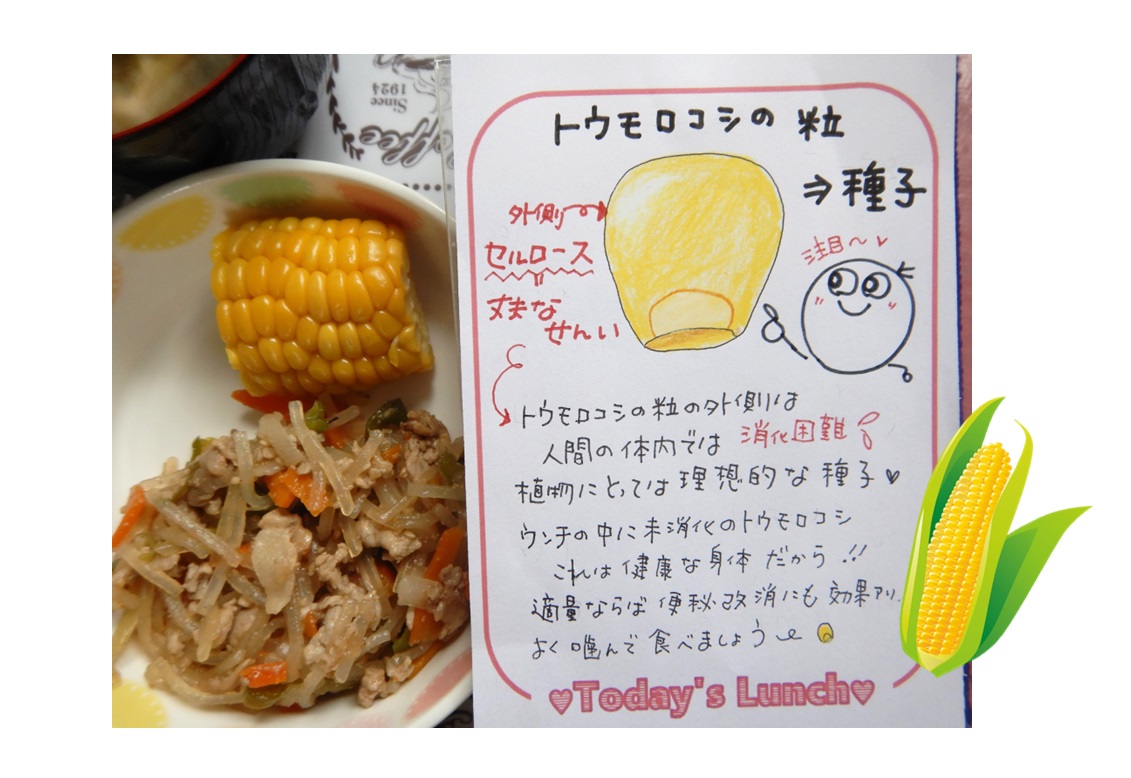 Since
1924
Coffee
トウモロコシの 粒
⇒種子
外側
セルロース
丈夫な
せんい
注目～♥
トウモロコシの粒の外側は
人間の体内では 消化困難
植物にとっては 理想的な 種子♥
ウンチの中に未消化のトウモロコシ
これは健康な身体 だから!!
適量ならば 便秘改消にも 効果アリ.
よく噛んで 食べましょう
♥Today's Lunch♥